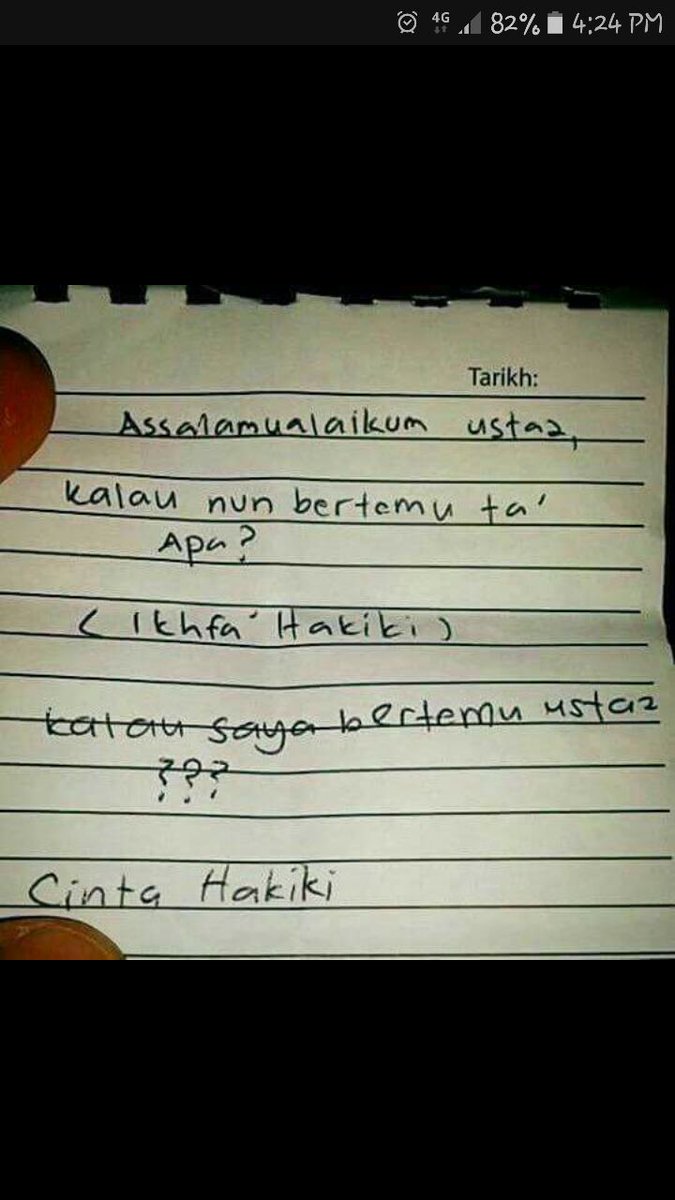 4G 82% 4:24 PM
Tarikh:
Assalamualaikum ustaz,
kalau nun bertemu ta'
Apa?
(Ikhfa' Hakiki)
kalau saya bertemu ustaz
???
Cinta Hakiki